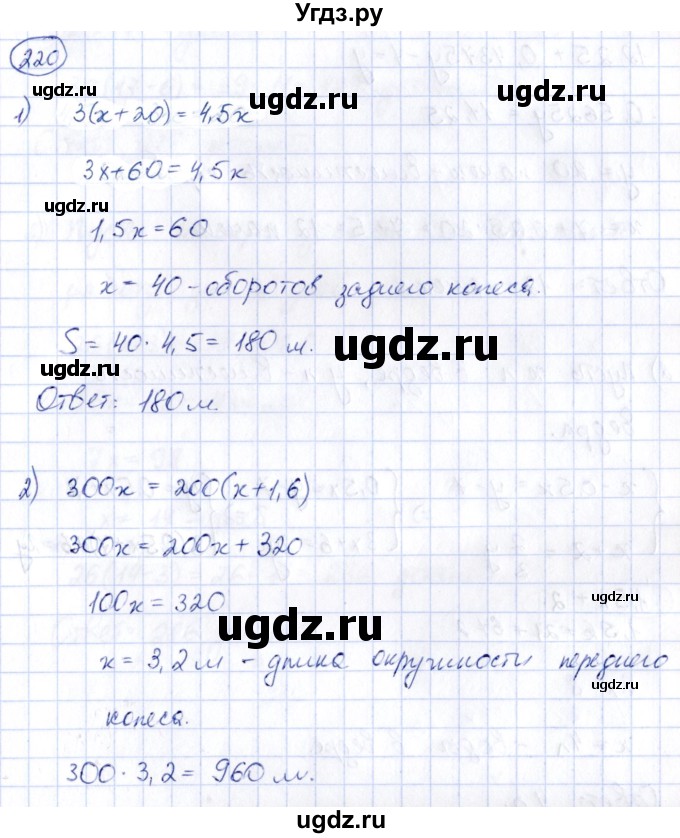 Угдз.ру
220
1) 3(x+20) = 4,5x
3x+60 = 4,5x
1,5x = 60
x = 40 - оборотов заднего колеса.
S = 40 · 4,5 = 180 м.
Ответ: 180 м.
2) 300x = 200(x+1,6)
300x = 200x + 320
100x = 320
x = 3,2 м - длина окружности переднего
колеса.
300 · 3,2 = 960 м.
ugdz.ru
ugdz.ru
ugdz.ru
ugdz.ru
ugdz.ru
ugdz.ru
ugdz.ru
ugdz.ru
ugdz.ru
ugdz.ru
ugdz.ru
ugdz.ru
ugdz.ru
ugdz.ru